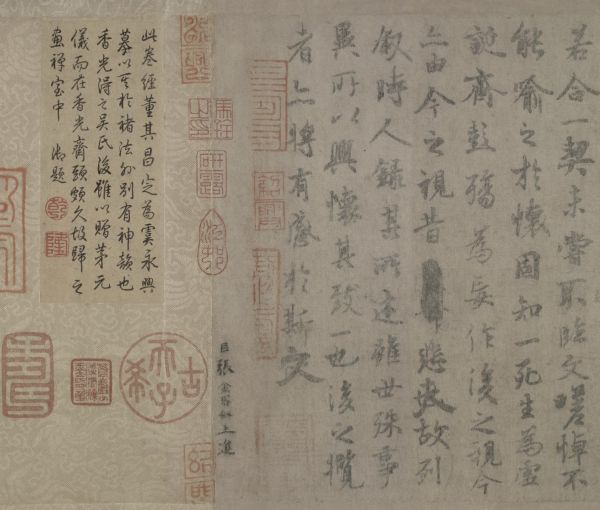 若合一契未嘗不臨文嗟悼不
能喻之於懷固知一死生為虛
誕齊彭殤為妄作後之視今
亦由今之視昔悲夫故列
敘時人錄其所述雖世殊事
異所以興懷其致一也後之攬
者亦將有感於斯文
臣張金界奴上進
此卷經董其昌定為虞永興
摹以其於褚法外別有神韻也
香光得之吳氏後雖以贈茅元
儀而在香光齋頭頗久故歸之
畫禪室中 御題
古希天子